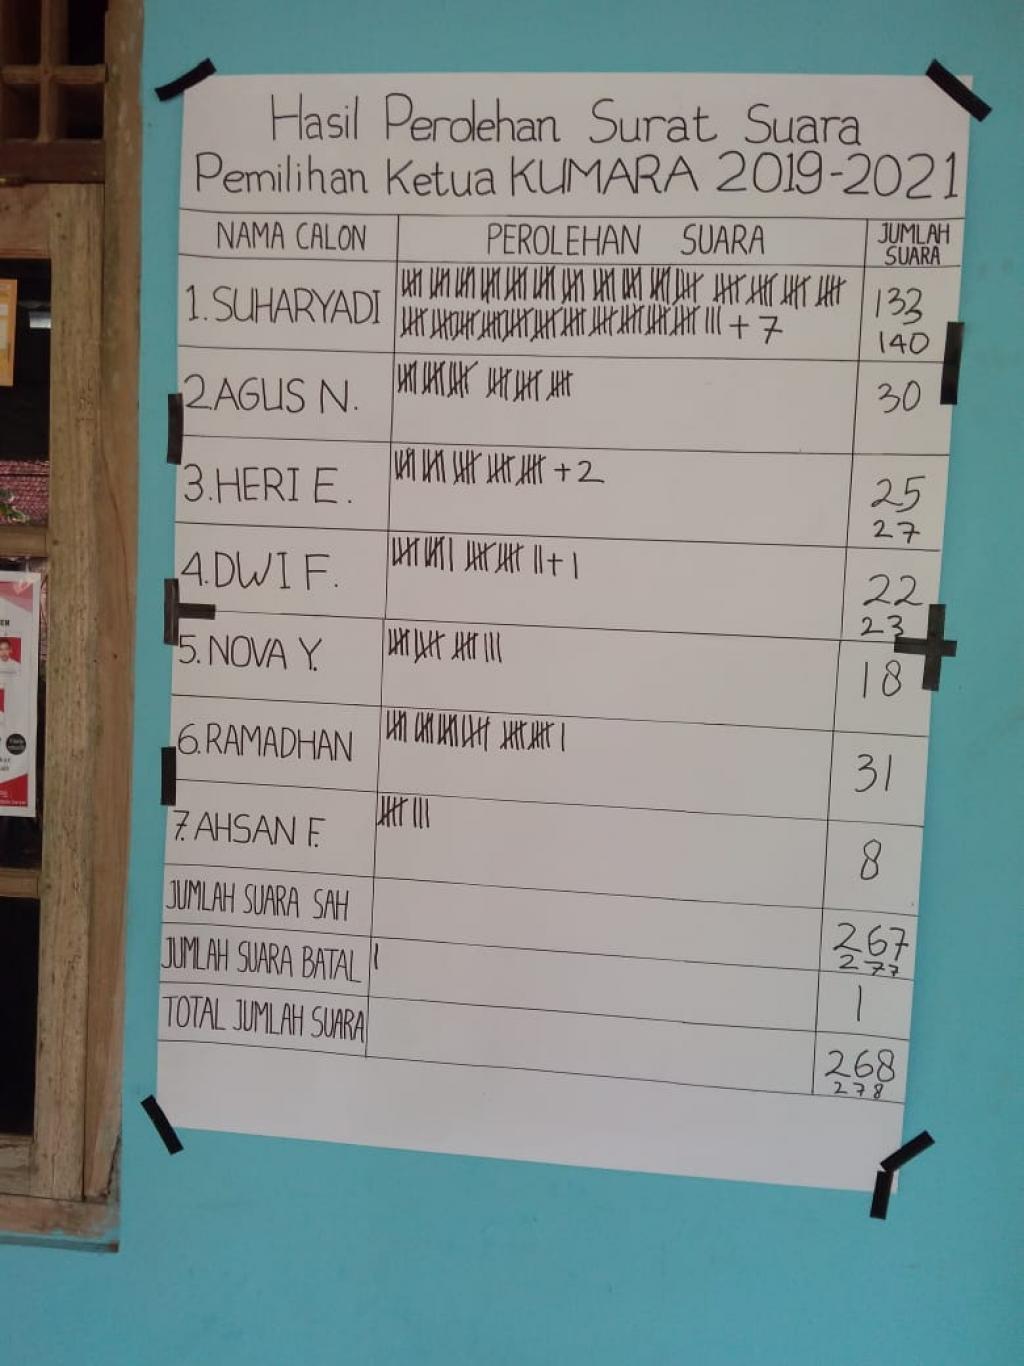 Hasil Perolehan Surat Suara
Pemilihan Ketua KUMARA 2019-2021
NAMA CALON PEROLEHAN SUARA JUMLAH SUARA
1. SUHARYADI + 7 133 140
2. AGUS N. 30
3. HERI E. + 2 25 27
4. DWI F. + 1 22 23
5. NOVA Y. 18
6. RAMADHAN 31
7. AHSAN F. 8
JUMLAH SUARA SAH 267 277
JUMLAH SUARA BATAL 1
TOTAL JUMLAH SUARA 268 278